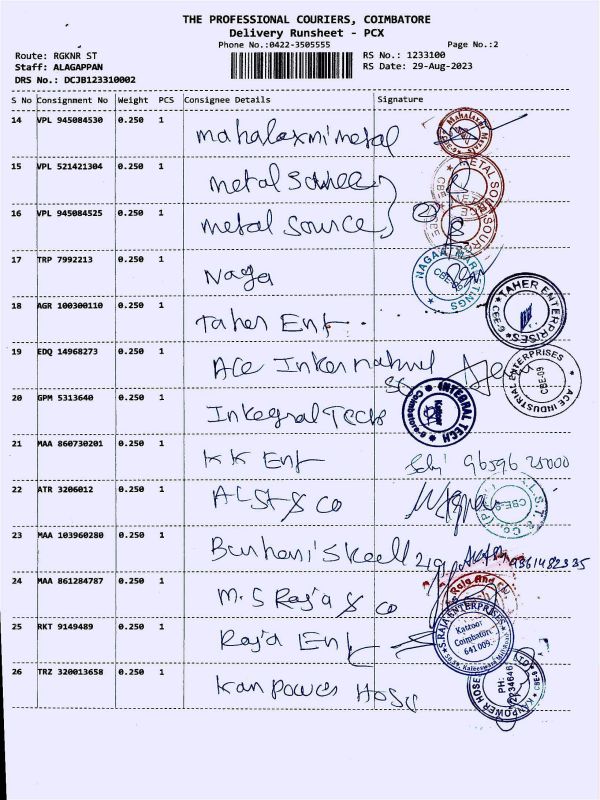 THE PROFESSIONAL COURIERS, COIMBATORE
Delivery Runsheet - PCX
Phone No.:0422-3505555
Page No.:2
Route: RGKNR ST
RS No.: 1233100
Staff: ALAGAPPAN
RS Date: 29-Aug-2023
DRS No.: DCJB123310002
S No Consignment No Weight PCS Consignee Details Signature
14 VPL 945084530 0.250 1 Mahalaxmi metal
15 VPL 521421304 0.250 1 Metal Source
METAL SOURCE
16 VPL 945084525 0.250 1 Metal Source 2
17 TRP 7992213 0.250 1 Naga
NAGAA MARKETINGS CBE-09
18 AGR 100300110 0.250 1 Taher Ent
TAHER ENTERPRISES CBE-9
19 EDQ 14968273 0.250 1 Ace International
ACE INDUSTRIAL ENTERPRISES CBE-09
20 GPM 5313640 0.250 1 Integral Tech
INTEGRAL TECH Coimbatore-9
21 MAA 860730201 0.250 1 KK Ent 96596 25000
22 ATR 3206012 0.250 1 ALST & Co
L.S.T. & Co., (P) CBE-9
23 MAA 103960280 0.250 1 Burhani Steell 9361482335
24 MAA 861284787 0.250 1 M.S Raja & Co
Raja And
25 RKT 9149489 0.250 1 Raja Ent
S.RAJA ENTERPRISES Kattoor Coimbatore 641 009
26 TRZ 320013658 0.250 1 Kanpower Hose
KANPOWER HOSE PH: 2234646 CBE-9